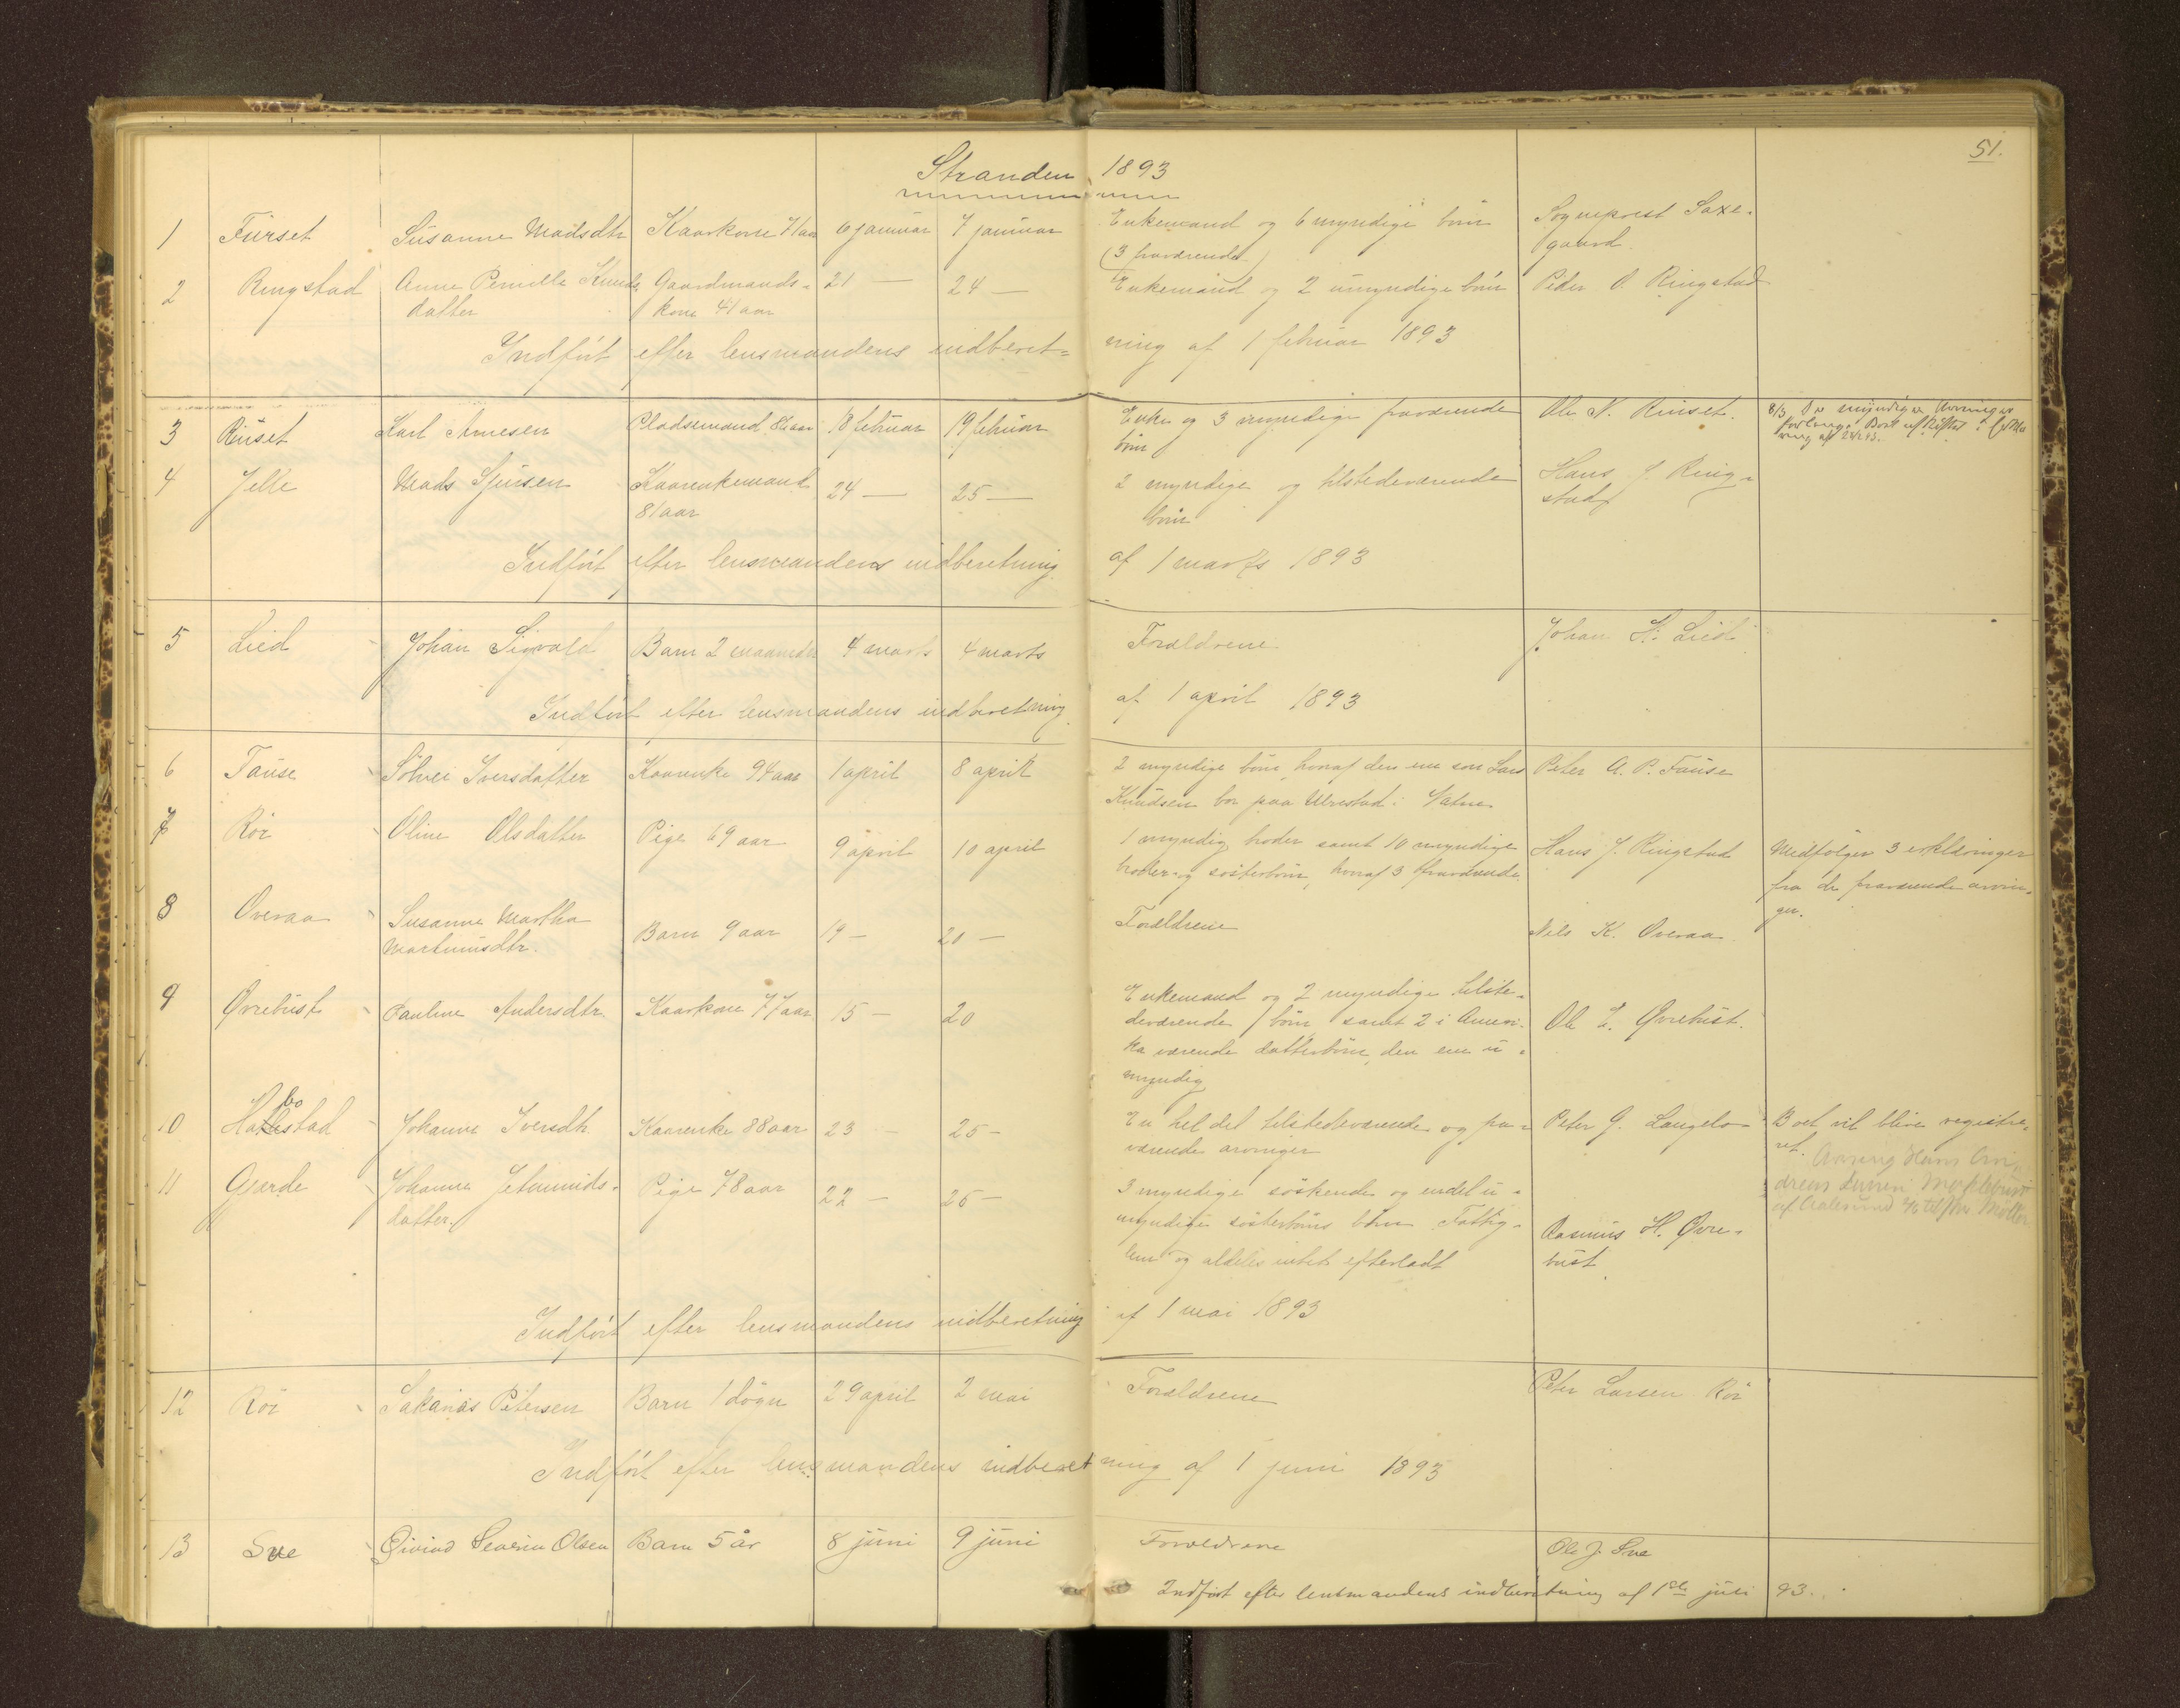 51.
Stranden 1893
1 Furset Susanne Madsdtr Kaarkone 71 aar 6 januar 7 januar Enkemand og 6 myndige børn Sogneprest Saxe-
(3 fraværende) gaard.
2 Ringstad Anne Pernille Knuds Gaardmands- 21 — 24 — Enkemand og 2 umyndige børn Peder O. Ringstad
datter kone 41 aar
Indført efter lensmandens indberet= ning af 1 februar 1893
3 Riuset Karl Arnesen Pladsemand aar 18 februar 19 februar Enke og 3 myndige fraværende Ole N. Riuset. 8/3 De myndige Arvinger
børn forlange Boet af
4 Jelle Mads Sjursen Kaarenkemand 24 — 25 — 2 myndige og tilstedeværende Hans J. Ring-
81 aar børn stad
Indført efter lensmandens indberetning af 1 marts 1893
5 Lied Johan Sigvald Barn 2 maaneder 4 marts 4 marts Forældrene Johan H. Lied
Indført efter lensmandens indberetning af 1 april 1893
6 Fause Sølvei Iversdatter Kaarenke 94 aar 1 april 8 april 2 myndige børn, hvoraf den ene søn Lars Peter A. P. Fause
Knudsen bor paa Ulvestad i Vatne
7 Rör Oline Olsdatter Pige 69 aar 9 april 10 april 1 myndig broder samt 10 myndige Hans J. Ringstad Medfølger 3 erklæringer
broder- og søsterbørn, hvoraf 3 fraværende. fra de fraværende arvin-
ger.
8 Overaa Susanne Martha Barn 9 aar 19 — 20 — Forældrene Nils K. Overaa
Martinusdtr.
9 Øvrebust Pauline Andersdtr. Kaarkone 77 aar 15 — 20 Enkemand og 2 myndige tilste-
deværende børn samt 2 i Ameri- Ole L. Øvrebust.
ka værende datterbørn, den ene u-
myndig
10 Habostad Johanne Iversdtr Kaarenke 88 aar 23 — 25 — En hel del tilstedeværende og fra- Peter G. Langlo Boet vil blive registre-
værende arvinger ret.
11 Gjærde Johanne Jetmunds- Pige 78 aar 22 — 25 — 3 myndige søskende og endel u-
datter. myndige søsterbørns børn. Fattig- Rasmus H. Øvre-
lem og aldeles intet efterladt bust
Indført efter lensmandens indberetning af 1 mai 1893
12 Rör Sakarias Petersen Barn 1 døgn 29 april 2 mai Forældrene Peter Larsen Rör
Indført efter lensmandens indberet ning af 1 juni 1893
13 Sve Øivind Severin Olsen Barn 5 år 8 juni 9 juni Forældrene Ole J. Sve
Indført efter lensmandens indberetning af 1ste juli 93.